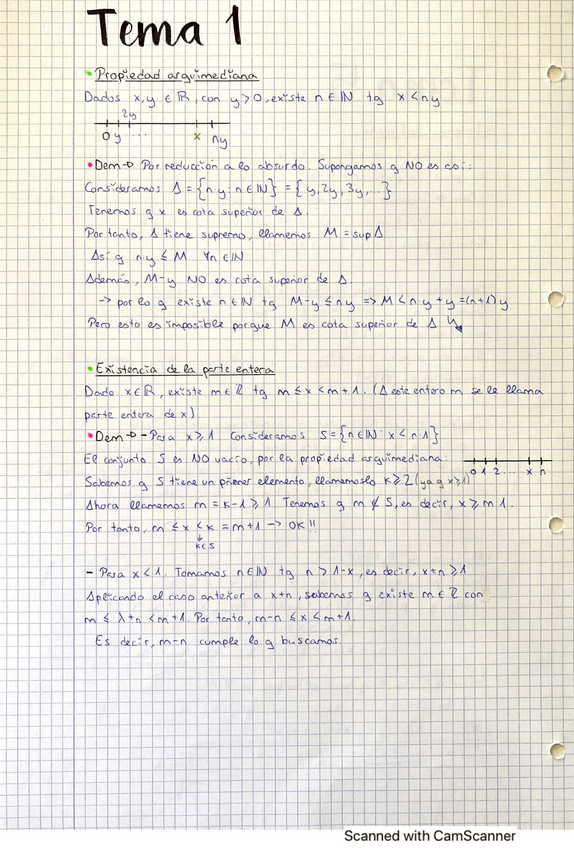 Tema 1
• Propiedad arquimediana
Dados x,y ∈ ℝ, con y>0, existe n ∈ ℕ tq x < ny
2y
0 y ... x ny
• Dem → Por reducción a lo absurdo. Supongamos q NO es así:
Consideramos A = {n·y : n ∈ ℕ} = {y, 2y, 3y, ...}
Tenemos q x es cota superior de A.
Por tanto, A tiene supremo, llamemos M = sup A
Así q n·y ≤ M ∀n ∈ ℕ
Además, M-y NO es cota superior de A.
→ por lo q existe n ∈ ℕ tq M-y ≤ ny => M < n·y + y = (n+1)y
Pero esto es imposible porque M es cota superior de A
• Existencia de la parte entera
Dado x ∈ ℝ, existe m ∈ ℤ tq m ≤ x < m+1. (A este entero m se le llama
parte entera de x)
• Dem → - Para x ≥ 1. Consideramos S = {n ∈ ℕ : x < n·1}
El conjunto S es NO vacío, por la propiedad arquimediana:
0 1 2 ... x n
Sabemos q S tiene un primer elemento, llamemoslo k ≥ 2 (ya q x ≥ 1)
Ahora llamemos m = k-1 ≥ 1 Tenemos q m ∉ S, es decir, x ≥ m·1.
Por tanto, m ≤ x < k = m+1 → OK!!
↓
k∈S
- Para x < 1. Tomamos n ∈ ℕ tq n > 1-x, es decir, x+n ≥ 1
Aplicando el caso anterior a x+n, sabemos q existe m ∈ ℤ con
m ≤ x+n < m+1. Por tanto, m-n ≤ x < m+1.
Es decir, m-n cumple lo q buscamos.
Scanned with CamScanner